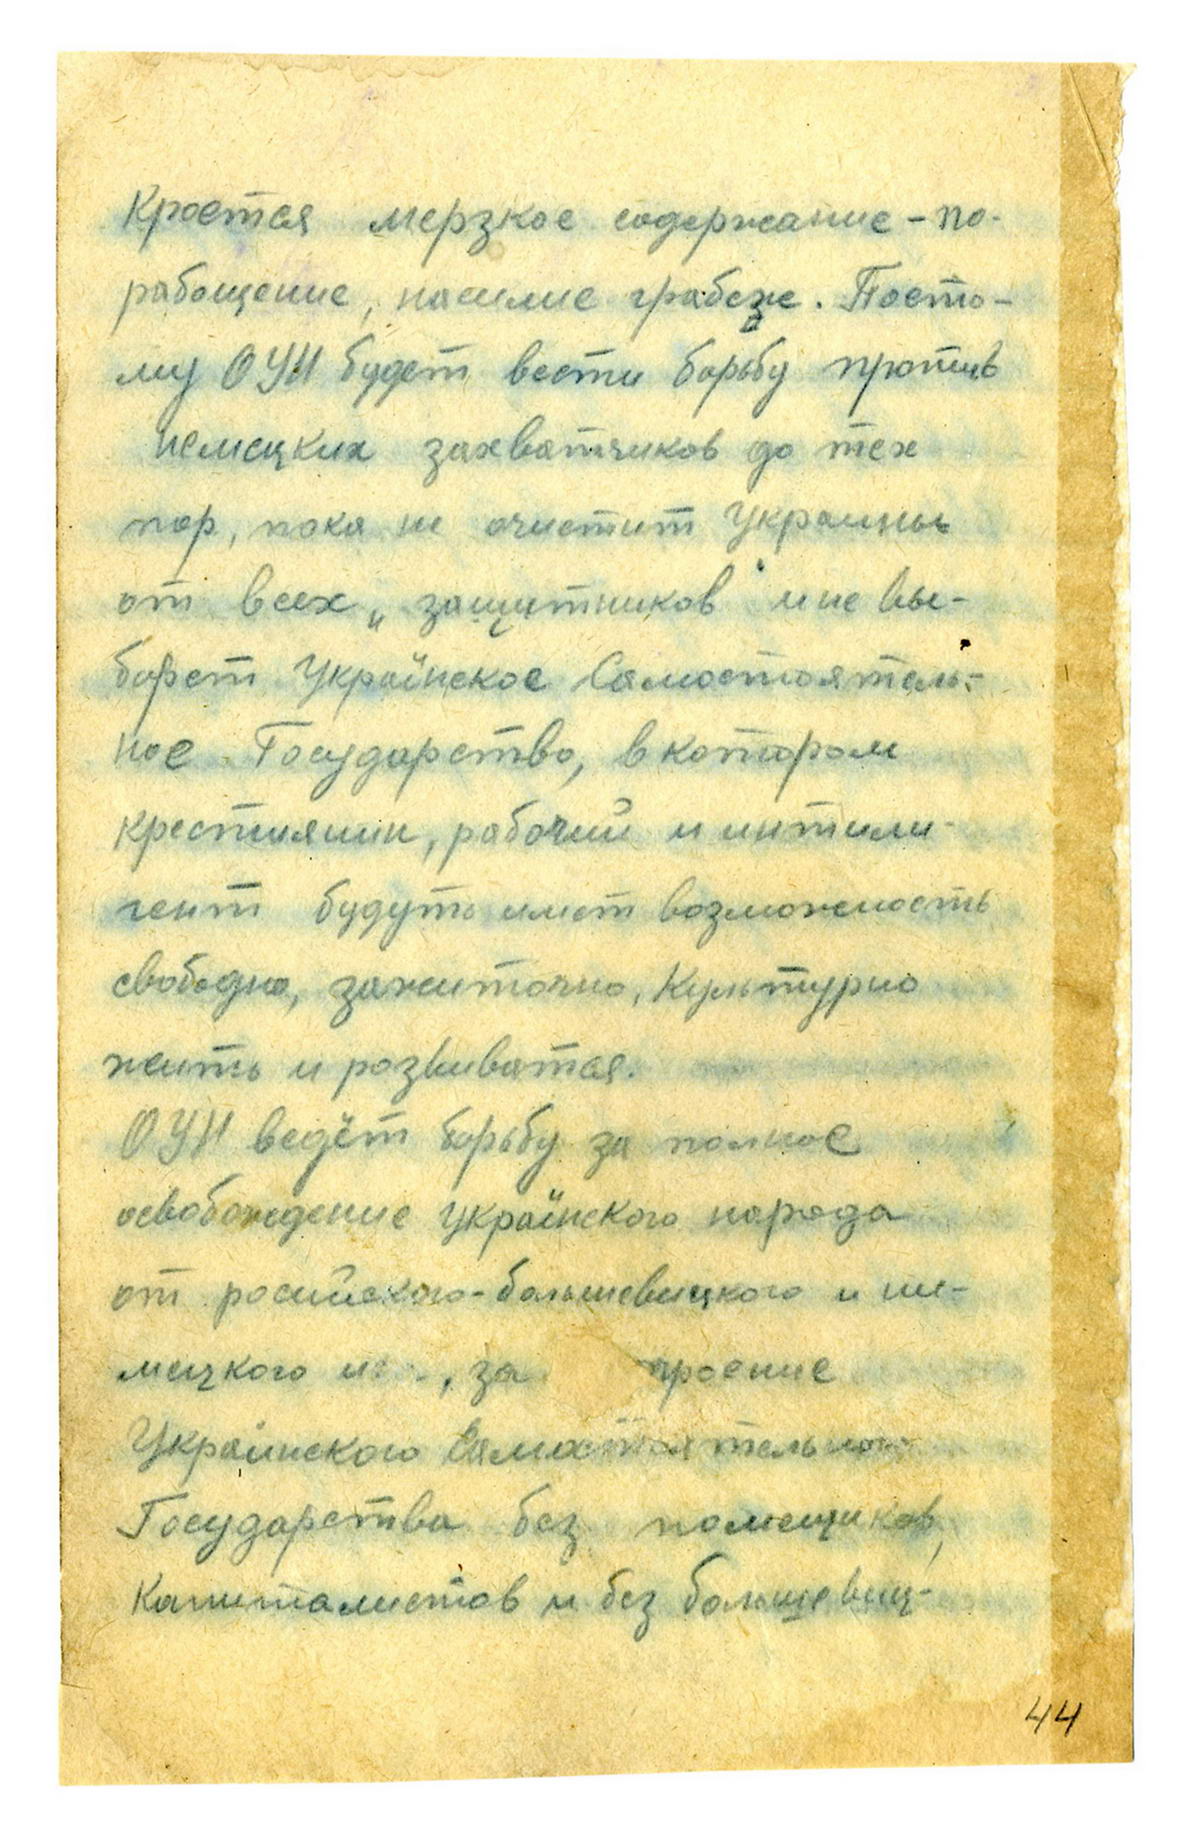 Кроется мерзкое содержание - по-
рабощение, насилие грабеж. Поето-
му ОУН будет вести борьбу против
немецких захватчиков до тех
пор, пока не очистит Украины
от всех „защитников" и не вы-
борет Украïнское Самостоятель-
ное Государство, в котором
крестиянин, рабочий и интили-
гент будуть имет возможность
свободно, зажиточно, культурно
жить и розвиватся.
ОУН ведёт борьбу за полное
освобождение украïнского народа
от росийского-большевицкого и ни-
мецкого , за роение
Украинского Самостоятельного
Государства без помещиков,
капиталистов и без большевиц-
44